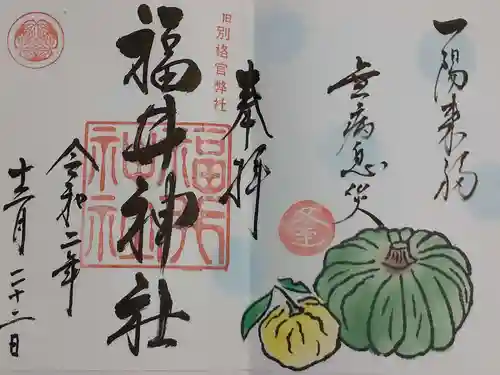 一陽来福
無病息災
冬至
奉拝
旧別格官弊社
福井神社
福井神社
令和二年
十二月二十二日